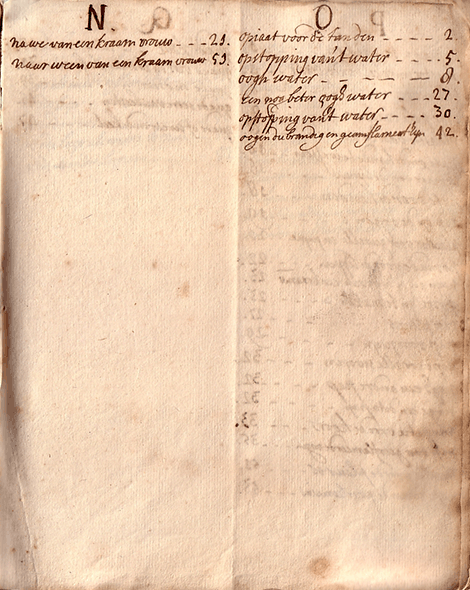 N
na we van een kraam vrouw - - - 21.
naar ween van een kraam vrouw 51.
O
opiaat voor de tanden - - - - - 2.
opstopping vant water - - - - 5.
oogh water - - - - - 8.
een nog beter oogh water - - - 27.
opstopping vant water - - - - 30.
oogen die brandig en 42.